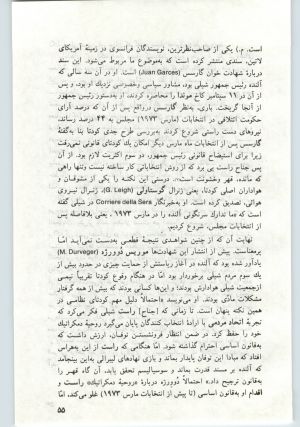 است. م.) یکی از صاحب‌نظرترین، نویسندگان فرانسوی در زمینهٔ آمریکای
لاتین، سندی منتشر کرده است که به‌موضوع ما مربوط می‌شود. این سند
دربارهٔ شهادت خوان گارسس (Juan Garces) است. او در آن سه سالی که
آلنده رئیس جمهور شیلی بود، مشاور سیاسی وخصوصی نزدیك او بود، و پس
از آن در ۱۱ سپتامبر کاخ موندا را محاصره کردند، او به‌دستور رئیس جمهور
از آنجا گریخت. باری، به‌نظر گارسس درواقع پس از آن که درصد آرای
حکومت ائتلافی در انتخابات (مارس ۱۹۷۳) مجلس به ۴۴ درصد رسانده،
نیروهای دست راستی شروع کردند به‌بررسی طرح جدی کودتا بنا به‌گفتهٔ
گارسس پس از انتخابات ماه مارس دیگر امکان یك کودتای قانونی نمی‌رفت
زیرا برای استیضاح قانونی رئیس جمهور، دو سوم اکثریت لازم بود. از آن
پس جناح راست پی برد که از روش انتخاباتی کار ساخته نیست وتنها راهی
که مانده، قهر وخشونت است». درستی این نکته را یکی از مشوقان و
هواداران اصلی کودتا، یعنی ژنرال گوستاولی (G. Leigh)، ژنرال نیروی
هوائی، تصدیق کرده است. او به‌خبرنگار Corriere della Sera در شیلی گفته
است که «ما تدارك سرنگونی آلنده را در مارس ۱۹۷۳ ، یعنی بلافاصله پس
از انتخابات مجلس، شروع کردیم.
نهایت آن که از چنین شواهدی نتیجهٔ قطعی به‌دست نمی‌آید اما
برمعناست. پیش از انتشار این شهادت‌ها موریس دُووِرژه (M. Durveger)
یادآور شده بود که آلنده در آغاز ریاستش از حمایت چیزی در حدود بیش از
یك سوم مردم شیلی برخوردار بود اما در هنگام وقوع کودتا تقریباً نیمی
ازجمعیت شیلی هوادارش بودند؛ و این‌ها کسانی بودند که بیش از همه گرفتار
مشکلات مادّی بودند. او می‌نویسد «احتمالاً دلیل مهم کودتای نظامی در
همین نکته پنهان است. تا زمانی که (جناح) راست شیلی فکر می‌کرد که
تجربهٔ اتحاد مردمی با ارادهٔ انتخاب کنندگان پایان می‌گیرد روحیهٔ دمکراتیك
خود را حفظ کرد. در ضمن انتظار فرونشستن توفان، ارزش داشت که
به‌قانون اساسی احترام گذاشته شود. اما هنگامی که راست از این به‌هراس
افتاد که مبادا این توفان پایدار بماند و بازی نهادهای لیبرالی به‌این بینجامد
که آلنده بر مسند قدرت بماند و سوسیالیسم تحقق یابد، آن گاه قهر را
به‌قانون ترجیح داد» احتمالاً دُووِرژه دربارهٔ «روحیهٔ دمکراتیك» راست و
اقدام او به‌قانون اساسی (تا پیش از انتخابات مارس ۱۹۷۳) غلو می‌کند. امّا
۵۵